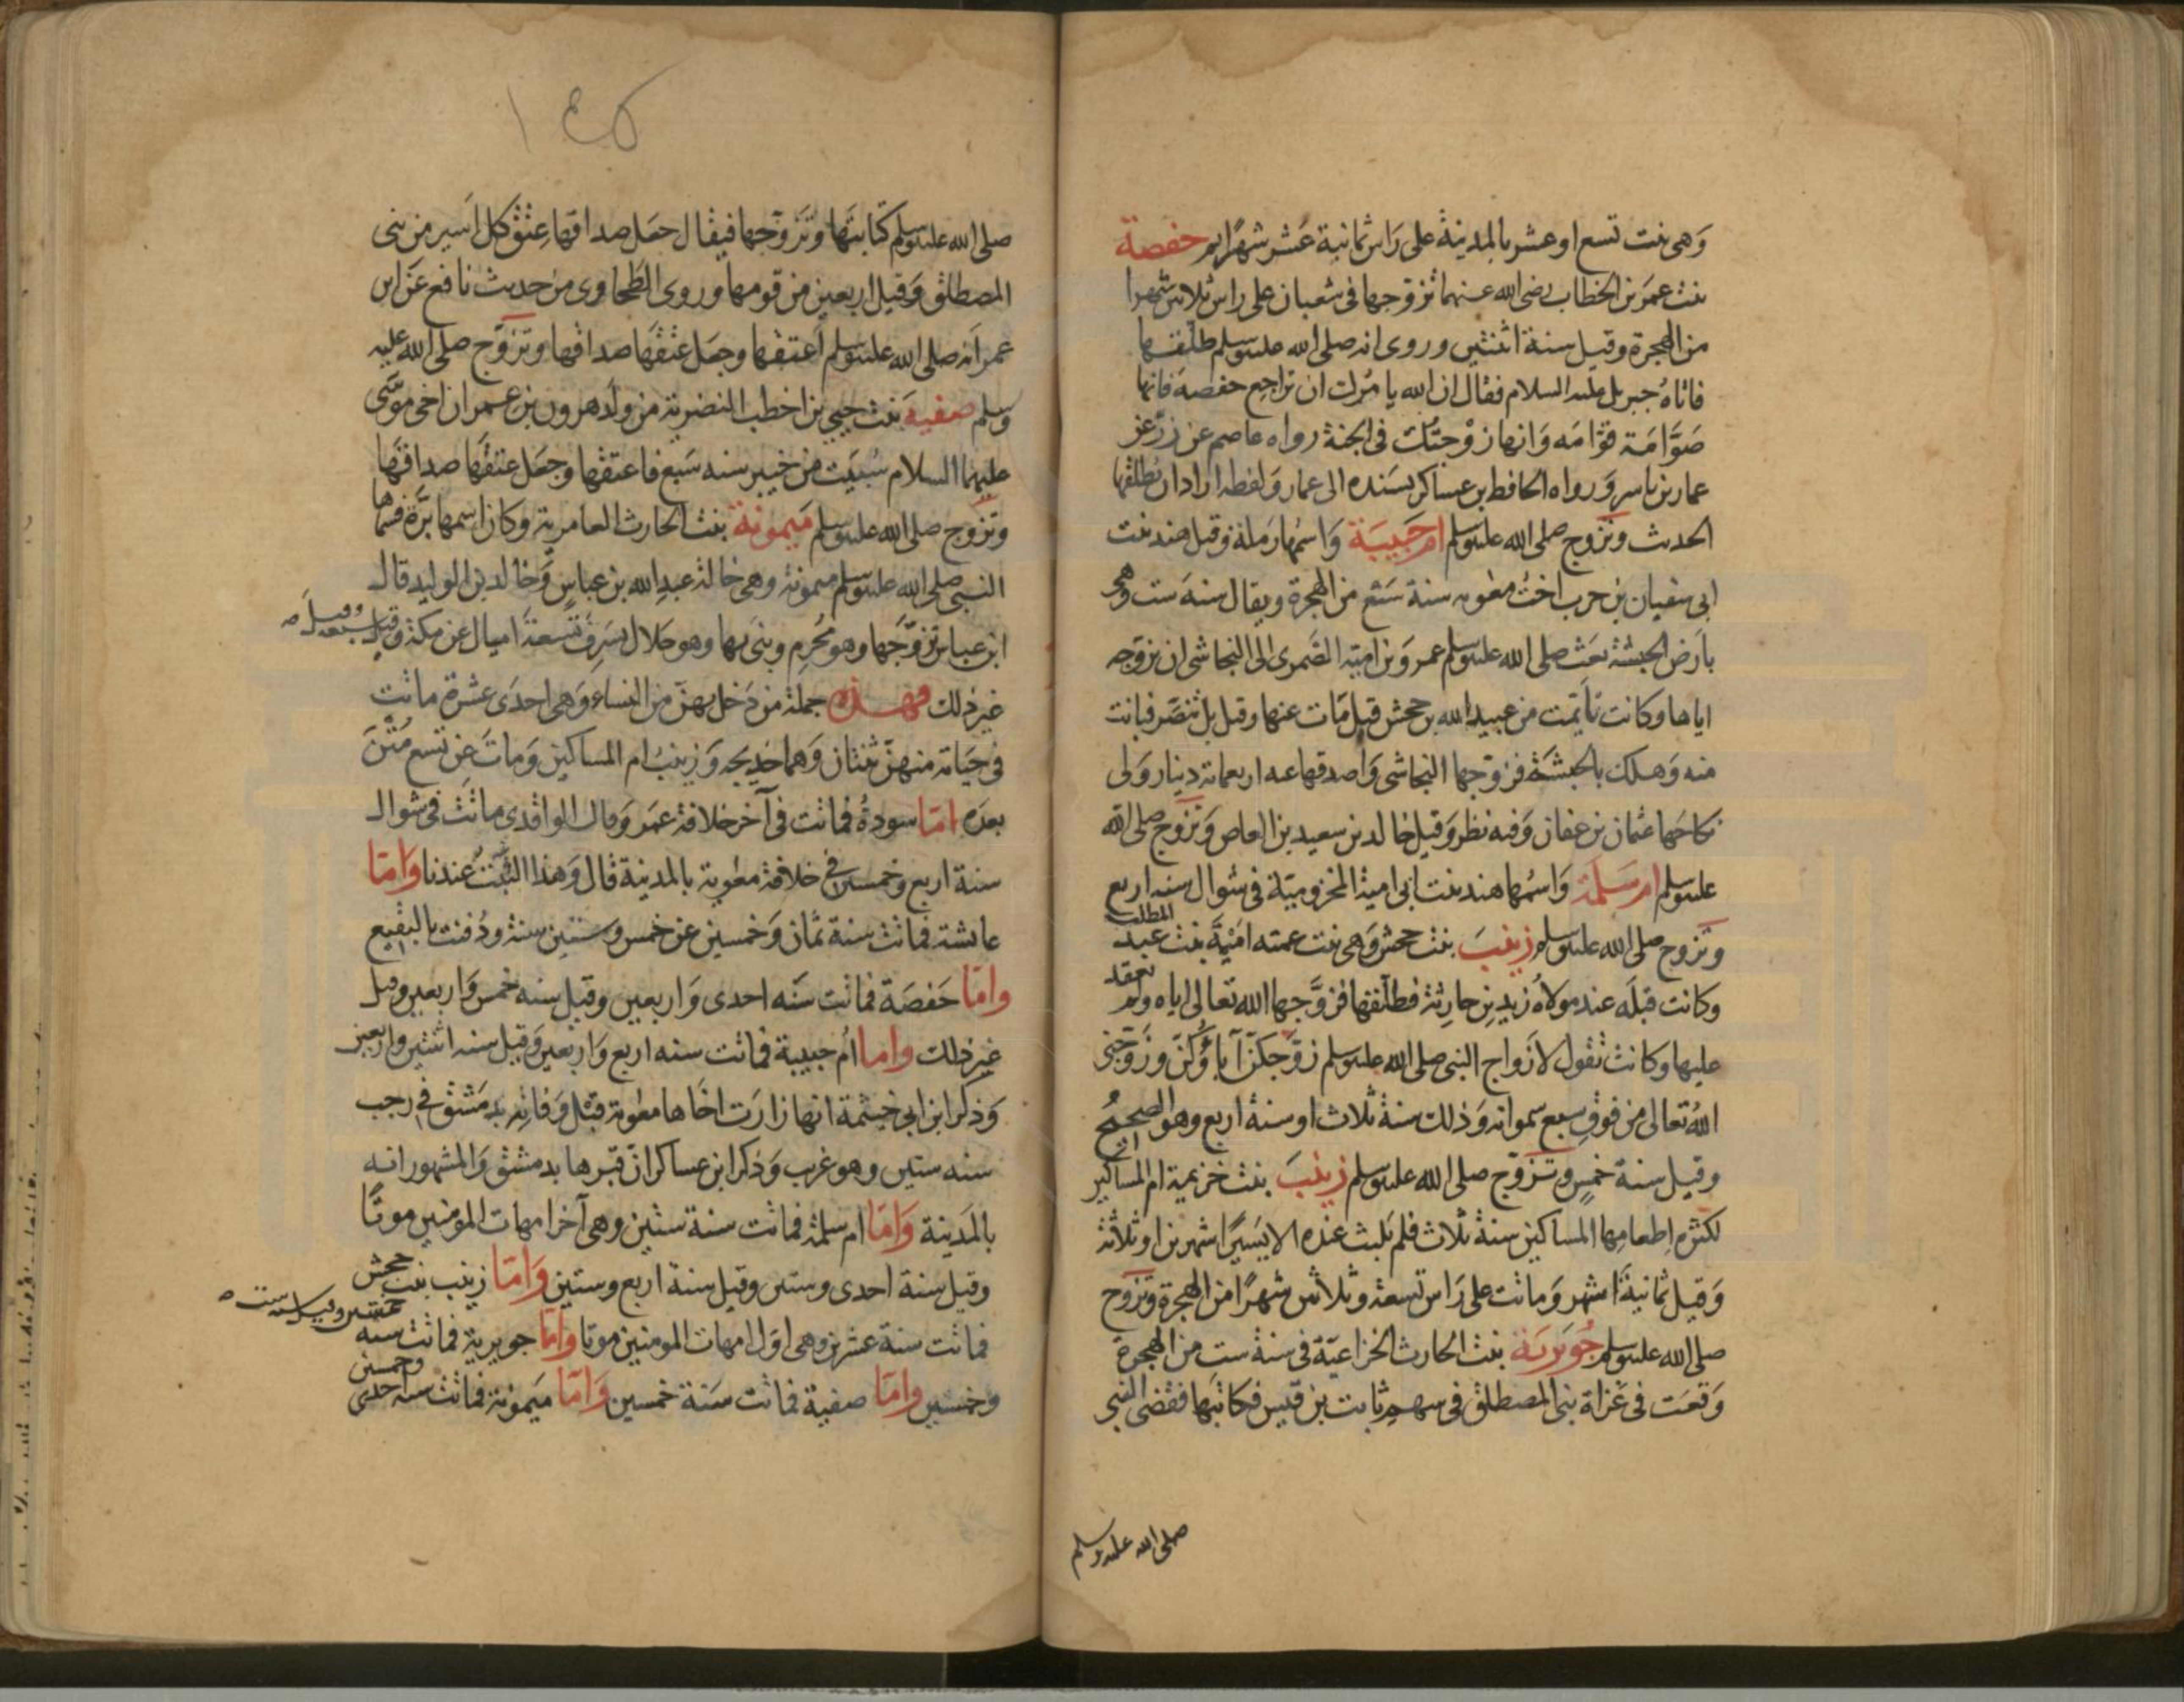 وَهى بنت تسع او عشر بالمدينة على رَاس ثمانية عَشر شهرًا ثم حفصة
بنت عمَر بن الخطاب رضى الله عنهما تزوجها فى شعبان على راس ثلاثين شهرا
من الهجرة وقيل سنة اثنتين وروى انه صلى الله عليه وسلم طلقها
فاتاهُ جبريل عليه السلام فقال ان الله يامرك ان تراجع حفصة فانها
صَوَّامَة قوّامَه وَانها زوْجتُك فى الجنة رواه عاصم عن زرّ عن
عمار بن ياسر وَرواه الحافظ بن عساكر بسَنده الى عمار وَلفظه اراد ان يُطلقها
الحديث وتزوج صلى الله عليه وسلم ام حَبيبَة وَاسمُها رَملة وقيل هند بنت
ابى سفيان بن حرب اختُ معٰويه سنة سَبع من الهجرة ويقال سنة ست وهى
بارَض الحبشة بَعَث صلى الله عليه وسلم عمرو بن امية الضَّمرى الى النجاشى ان يزوّجه
اياها وكانت تأيّمت من عبيد الله بن جحش قيل مَات عنها وقيل بل تنصَّر فبانت
منه وَهلك بالحبشَة فزوّجها النجاشى وَاصدقها عنه اربعمائة دينار وَلى
نكاحَها عثمان بن عفان وَفيه نظر وَقيل خالد بن سعيد بن العاص وَتزوج صلى الله
عليه وسلم ام سَلَمَة وَاسمُها هند بنت ابى امية المخزوميّة فى شوال سنه اربع
وَتزوج صلى الله عليه وسلم زينبَ بنت جحش وَهى بنت عمته امَيْمَة بنت عبد المطلب
وكانت قبلَه عند مولاهُ زيد بن حارِثة فطلّقها فزوَّجها الله تعالى اياه ولم يَعقد
عليها وكانت تقول لازَواج النبى صلى الله عليه وسلم زوَّجكنّ آباؤُكنّ وزَوّجنى
اللهُ تعالى من فوق سبع سمواته وَذلك سنة ثلاث او سنة اربع وهو الصحيحُ
وقيل سنة خمسٍ وتزوّج صلى الله عليه وسلم زينبَ بنت خزيمة ام المساكين
لكثرة اِطعامِها المساكين سنة ثلاث فلم تلبث عنده الا يَسيرًا شهرين او ثلاثة
وَقيل ثمانيةَ اشهر وَماتت على رَاس تسعة وثلاثين شهرًا من الهجرة وَتزوج
صلى الله عليه وسلم جُوَيرية بنت الحارث الخزاعيّة فى سنة ست من الهجرة
وَقعَت فى غَزاة بنى المصطلق فى سهم ثابت بن قيس فكاتبَها فقضى النبى
صلى الله عليه وسلم
صلى الله عليه وسلم كتابتَها وتَزوّجها فيقال جعَل صداقها عِتق كل اَسير من بنى
المصطلق وَقيل اربعين من قومها وروى الطحاوى من حديث نافع عَن ابن
عمرَ انه صلى الله عليه وسلم اَعتقها وجعَل عتقَها صداقها وتزوَّج صلى الله عليه
وسلم صفيةَ بنت حيى بن اخطب النضرية من ولد هٰرون بن عمران اخى موسَى
عليهما السلام سُبيَت من خيبر سنه سَبع فاعتقها وجعَل عتقها صداقها
وتزوج صلى الله عليه وسلم مَيمونة بنت الحارث العامرية وكان اسمها بَرَّة فسماها
النبى صلى الله عليه وسلم ميمونة وهى خالة عبدِ الله بن عباسٍ وَخالد بن الوليد قال
ابن عباس تزوَّجَها وهو مُحرِم وبنىَ بها وهو حَلال بسَرِفَ تسعةَ اميال عن مكة وقيل
وقيل سبعة
غير ذلك فهـذه جملة من دَخل بهنّ من النساء وَهى احدَى عشرة ماتت
فى حَيَاته منهنَّ ثنتان وَهما خديجَه وَزينبُ ام المساكين وَماتَ عن تسع مُتْنَ
بعدَه امّا سودةُ فماتت فى آخر خلافة عمَر وَقال الواقدى ماتَت فى شوال
سنة اربع وخمسين فى خلافة معٰوية بالمدينة قال وَهذا الثَّبتُ عندنا وَامّا
عائشة فماتت سنة ثمان وَخمسين عن خمس وستين سنة ودُفنت بالبقيع
وامّا حَفصَة فماتت سَنه احدى وَاربعين وقيل سنه خمس وَاربعين وقيل
غير ذلك واما اُم حبيبة فماتت سنه اربع وَاربعين وَقيل سنه اثنتين واربعين
وَذكر ابن ابى خيثمة انها زارَت اخَاها معٰوية قبْل وَفاته بدمَشق فى رجب
سنه ستين وهو غريب وَذكر ابن عساكر انّ قبرها بدمشق وَالمشهور انه
بالمَدينة وَامّا ام سلمة فماتت سنة ستين وهى آخر امهات المؤمنين موتًا
وقيل سنة احدى وستين وقيل سنة اربع وستين وَامّا زينب بنت جحش
فماتت سنة عشرين وهى اوّل امهات المؤمنين موتا وامّا جويرية فماتت سنه
خمسين وقيل سنه ست
وخمسين وامّا صفية فماتت سَنة خمسين وَامّا مَيمونة فماتت سنه احدى وخمسين